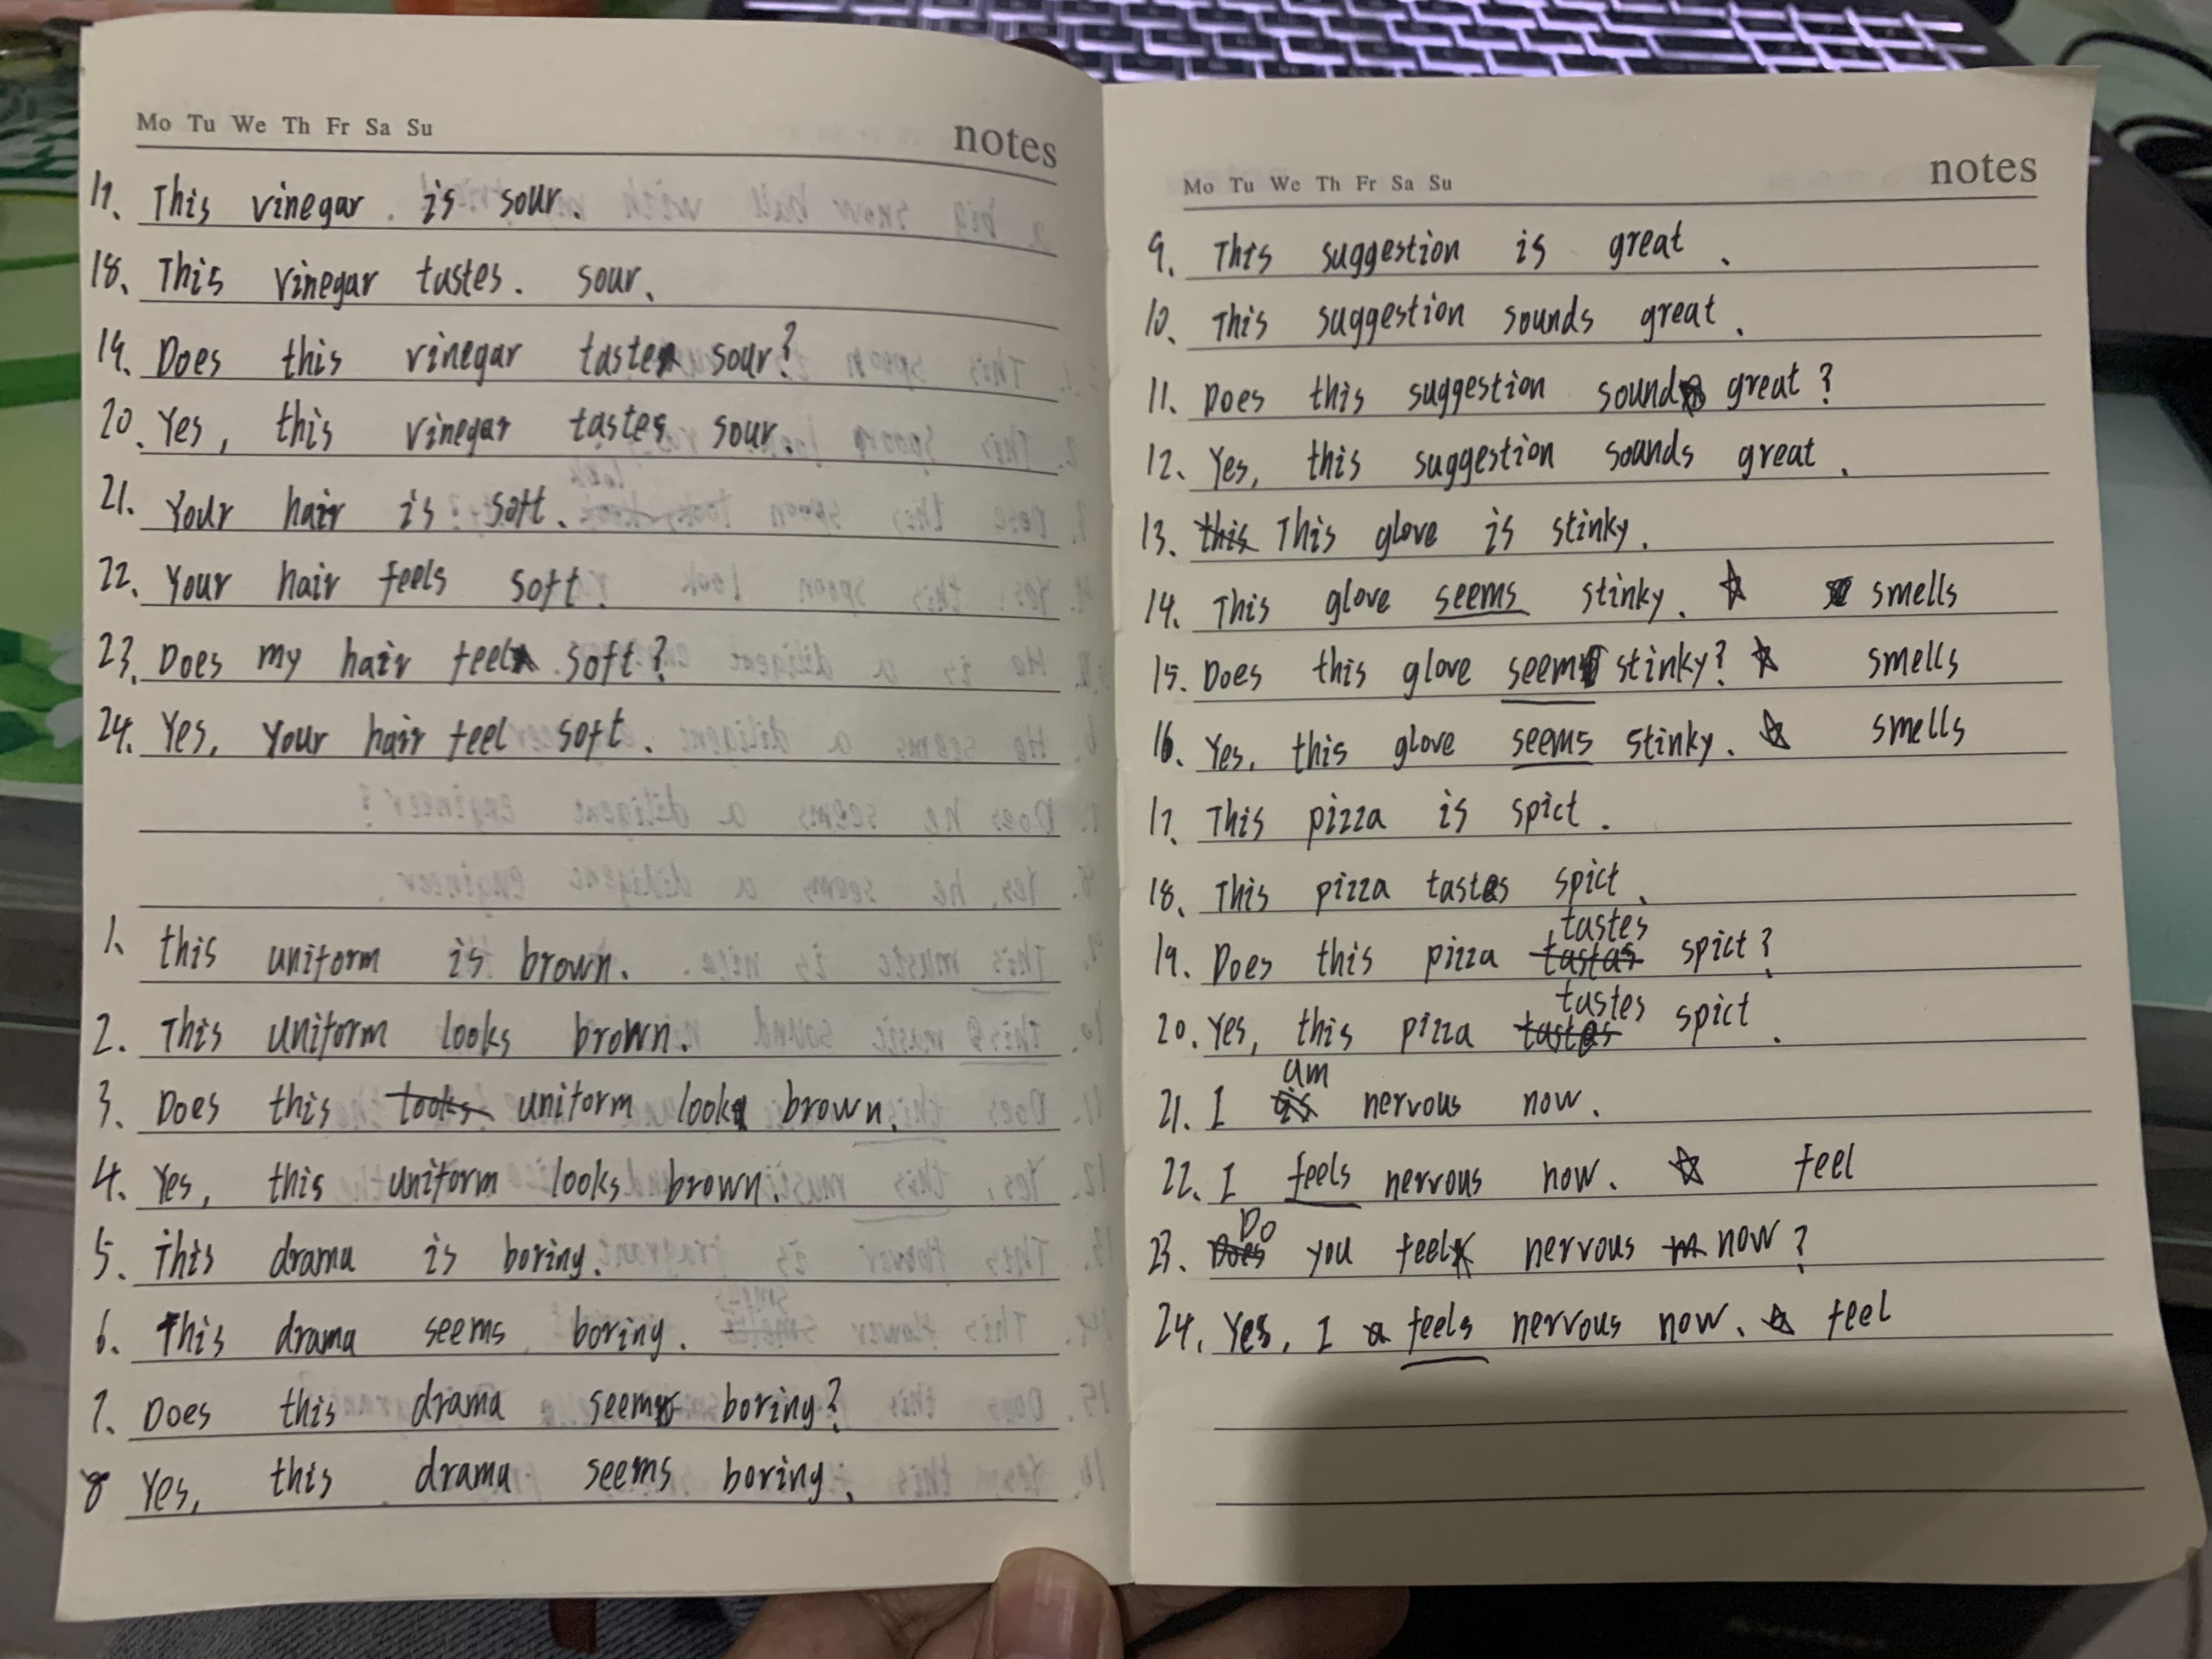 Mo Tu We Th Fr Sa Su notes
17. This vinegar . is sour.
18. This vinegar tastes. sour.
19. Does this vinegar taste sour?
20. Yes, this vinegar tastes sour.
21. Your hair is soft.
22. Your hair feels soft.
23. Does my hair feel soft?
24. Yes, Your hair feel soft.
1. this uniform is brown.
2. This uniform looks brown.
3. Does this looks uniform look brown.
4. Yes, this uniform looks brown.
5. This drama is boring.
6. This drama seems boring.
7. Does this drama seem boring?
8 Yes, this drama seems boring.
Mo Tu We Th Fr Sa Su notes
9. This suggestion is great.
10. This suggestion sounds great.
11. Does this suggestion sound great?
12. Yes, this suggestion sounds great.
13. this This glove is stinky.
14. This glove seems stinky. ☆ smells
15. Does this glove seem stinky? ☆ smells
16. Yes, this glove seems stinky. ☆ smells
17. This pizza is spict.
18. This pizza tastes spict.
tastes
19. Does this pizza tastas spict?
tastes
20. Yes, this pizza tastes spict.
am
21. I is nervous now.
22. I feels nervous now. ☆ feel
Do
23. Does you feel nervous now?
24. Yes, I a feels nervous now. ☆ feel